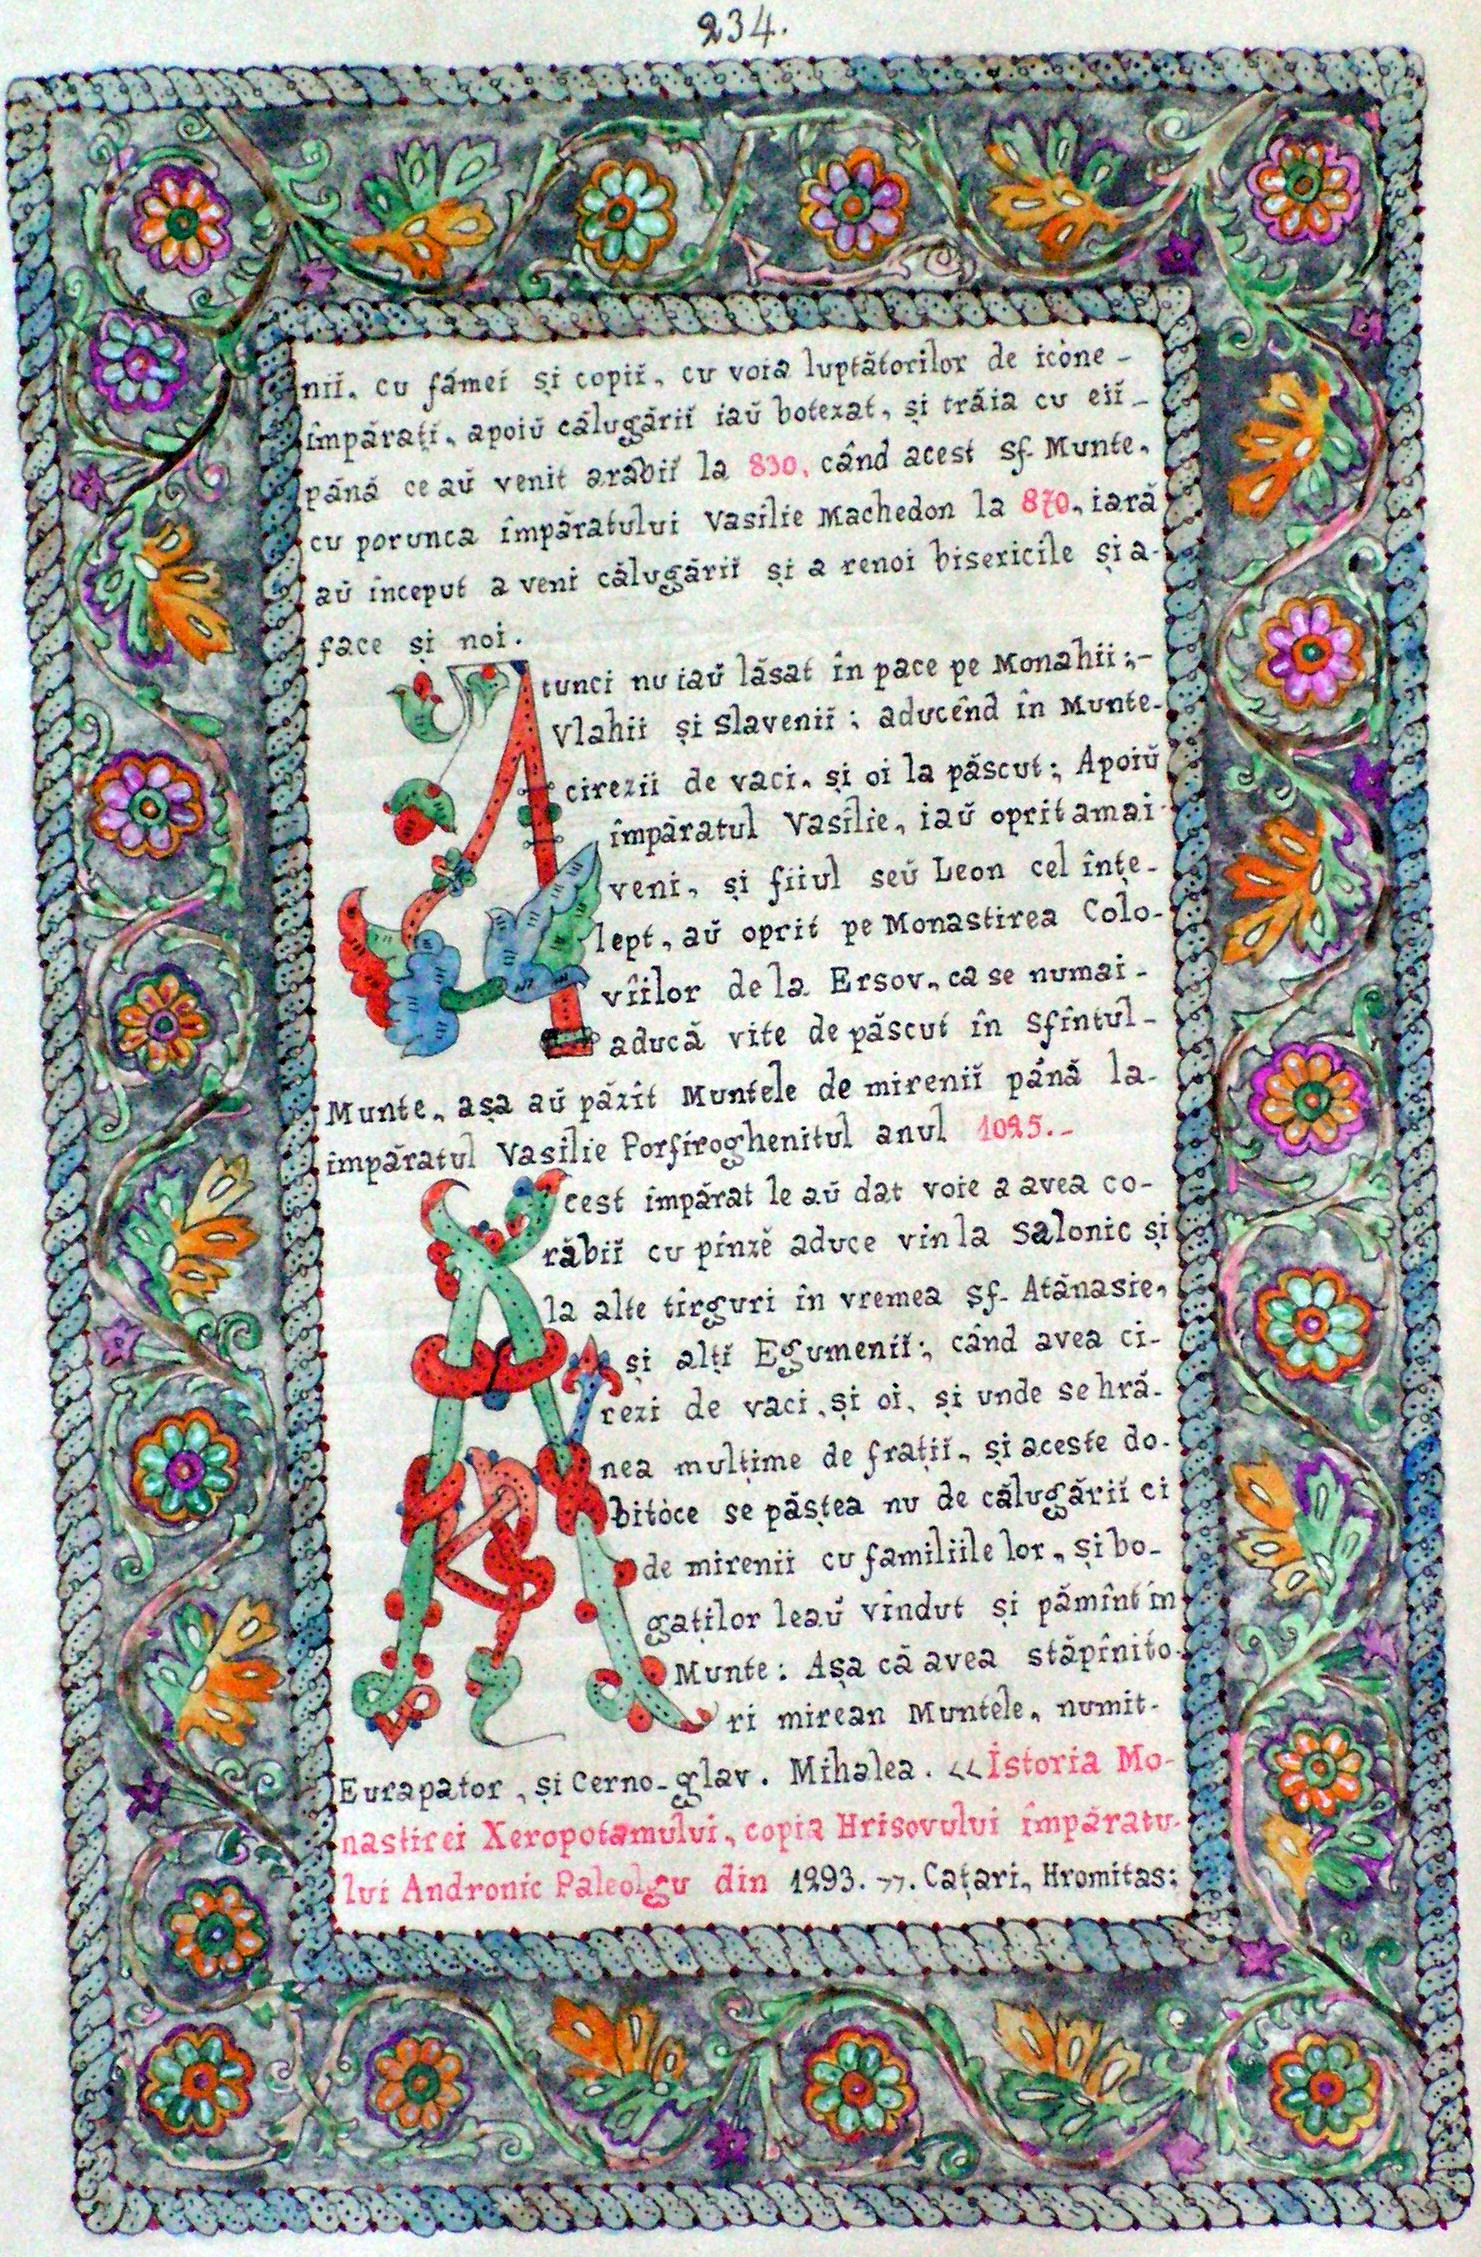 234.
niĭ. cu fămei și copiĭ, cu voia luptătorilor de icòne-
împărațĭ, apoiŭ călugăriĭ iaŭ botezat, și trăia cu eiĭ-
până ce aŭ venit arabiĭ la 830, când acest Sf. Munte,
cu porunca împăratului Vasilie Machedon la 870, iară
aŭ început a veni călugăriĭ și a renoi bisericile și a-
face și noi.
Atunci nu iaŭ lăsat în pace pe Monahii;-
Vlahii și Slaveniĭ; aducênd în Munte-
cirezii de vaci, și oi la păscut; Apoiŭ
împăratul Vasilie, iaŭ oprit a mai
veni, și fiiul seŭ Leon cel înțe-
lept, aŭ oprit pe Monastirea Colo-
viilor de la Ersov, ca se numai-
aducă vite de păscut în Sfîntul-
Munte, așa aŭ păzit Muntele de mireniĭ până la-
împăratul Vasilie Porfiroghenitul anul 1025.-
Acest împărat le aŭ dat voie a avea co-
răbiĭ cu pînzĕ aduce vin la Salonic și
la alte tîrguri în vremea Sf. Atănasie,
și alțĭ Egumeniĭ; când avea ci-
rezi de vaci, și oi, și unde se hră-
nea mulțime de frațiĭ, și aceste do-
bitòce se păștea nu de călugăriĭ ci
de mirenii cu familiile lor, și bo-
gaților leaŭ vîndut și pămînt în
Munte: Așa că avea stăpînito-
ri mirean Muntele, numit-
Evrapator, și Cerno-glav. Mihalea. «Istoria Mo-
nastirei Xeropotamului, copia Hrisovului împăratu-
lui Andronic Paleolgu din 1293.». Cațari, Hromitas: